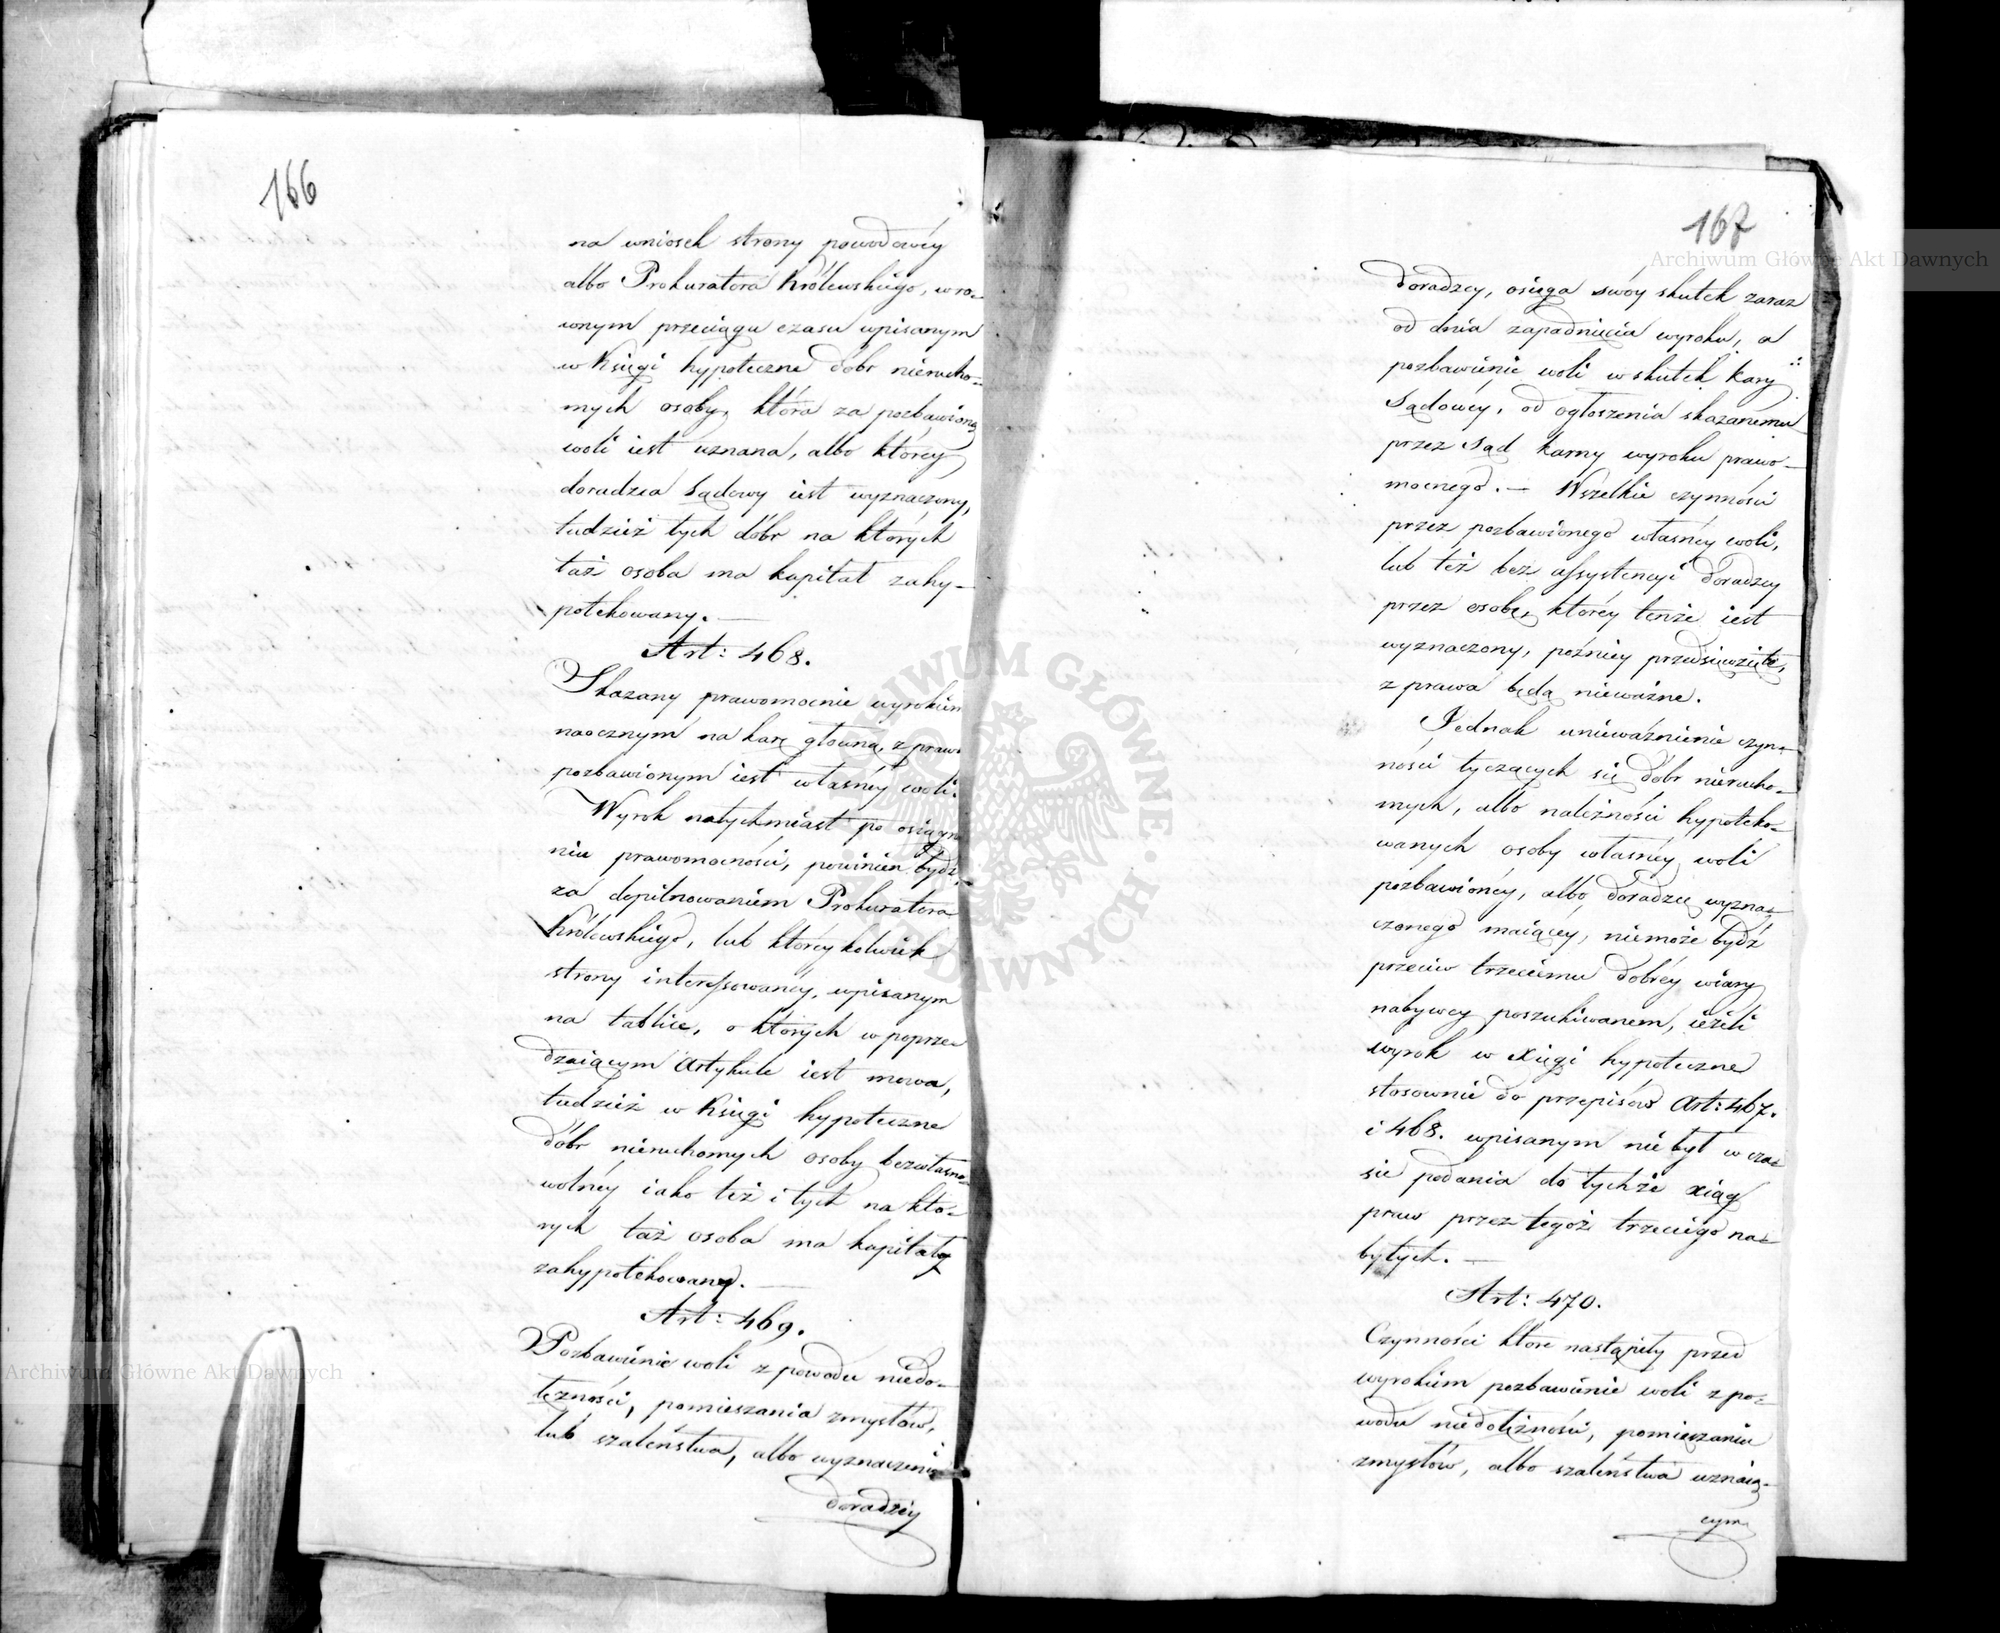 166
na wniosek strony powodowéy
albo Prokuratora Królewskiego, w ro-
wnym przeciągu czasu wpisanym
w Księgi hypoteczne dóbr nierucho-
mych osoby, która za pozbawioną
woli iest uznana, albo któréy
doradzca Sądowy iest wyznaczony,
tudzież tych dóbr na których
taż osoba ma kapitał zahy-
potekowany. —
Art: 468.
Skazany prawomocnie wyrokiem
naocznym na karę główną, z prawa
pozbawionym iest własnéy woli.
Wyrok natychmiast po osiągnie
niu prawomocności, powinien bydź,
za dopilnowaniem Prokuratora
Królewskiego, lub któréykolwiek
strony interessowanéy, wpisanym
na tablice, o których w poprze-
dzaiącym Artykule iest mowa,
tudzież w Księgi hypoteczne
dóbr nieruchomych osoby bezwłasno-
wolnéy iako też i tych na któ-
rych taż osoba ma kapitały
zahypotekowane. —
Art: 469.
Pozbawienie woli z powodu niedo-
łężności, pomieszania zmysłów,
lub szaleństwa, albo wyznaczenie
doradzcy
167
doradzcy, osięga swóy skutek zaraz
od dnia zapadnięcia wyroku, a
pozbawienie woli w skutek kary
Sądowéy, od ogłoszenia skazanemu
przez Sąd karny wyroku prawo-
mocnego. — Wszelkie czynności
przez pozbawionego własnéy woli,
lub też bez assystencyi doradzcy
przez osobę, któréy tenże iest
wyznaczony, poźniéy przedsięwzięte,
z prawa będą nieważne.
Jednak unieważnienie czyn-
ności tyczących się dóbr nierucho-
mych, albo należności hypoteko-
wanych osoby własnéy woli
pozbawionéy, albo doradzcę wyzna-
czonego maiącéy, niemoże bydź
przeciw trzeciemu dobréy wiary
nabywcy poszukiwanem, ieżeli
wyrok w xięgi hypoteczne
stosownie do przepisów Art: 467.
i 468. wpisanym nie był w cza-
sie podania do tychże xiąg
praw przez tegoż trzeciego na-
bytych. —
Art: 470.
Czynności które nastąpiły przed
wyrokiem pozbawienie woli z po-
wodu niedołężności, pomięszania
zmysłów, albo szaleństwa uznaią-
cym
Archiwum Główne Akt Dawnych
ARCHIWUM GŁÓWNE AKT DAWNYCH
Archiwum Główne Akt Dawnych